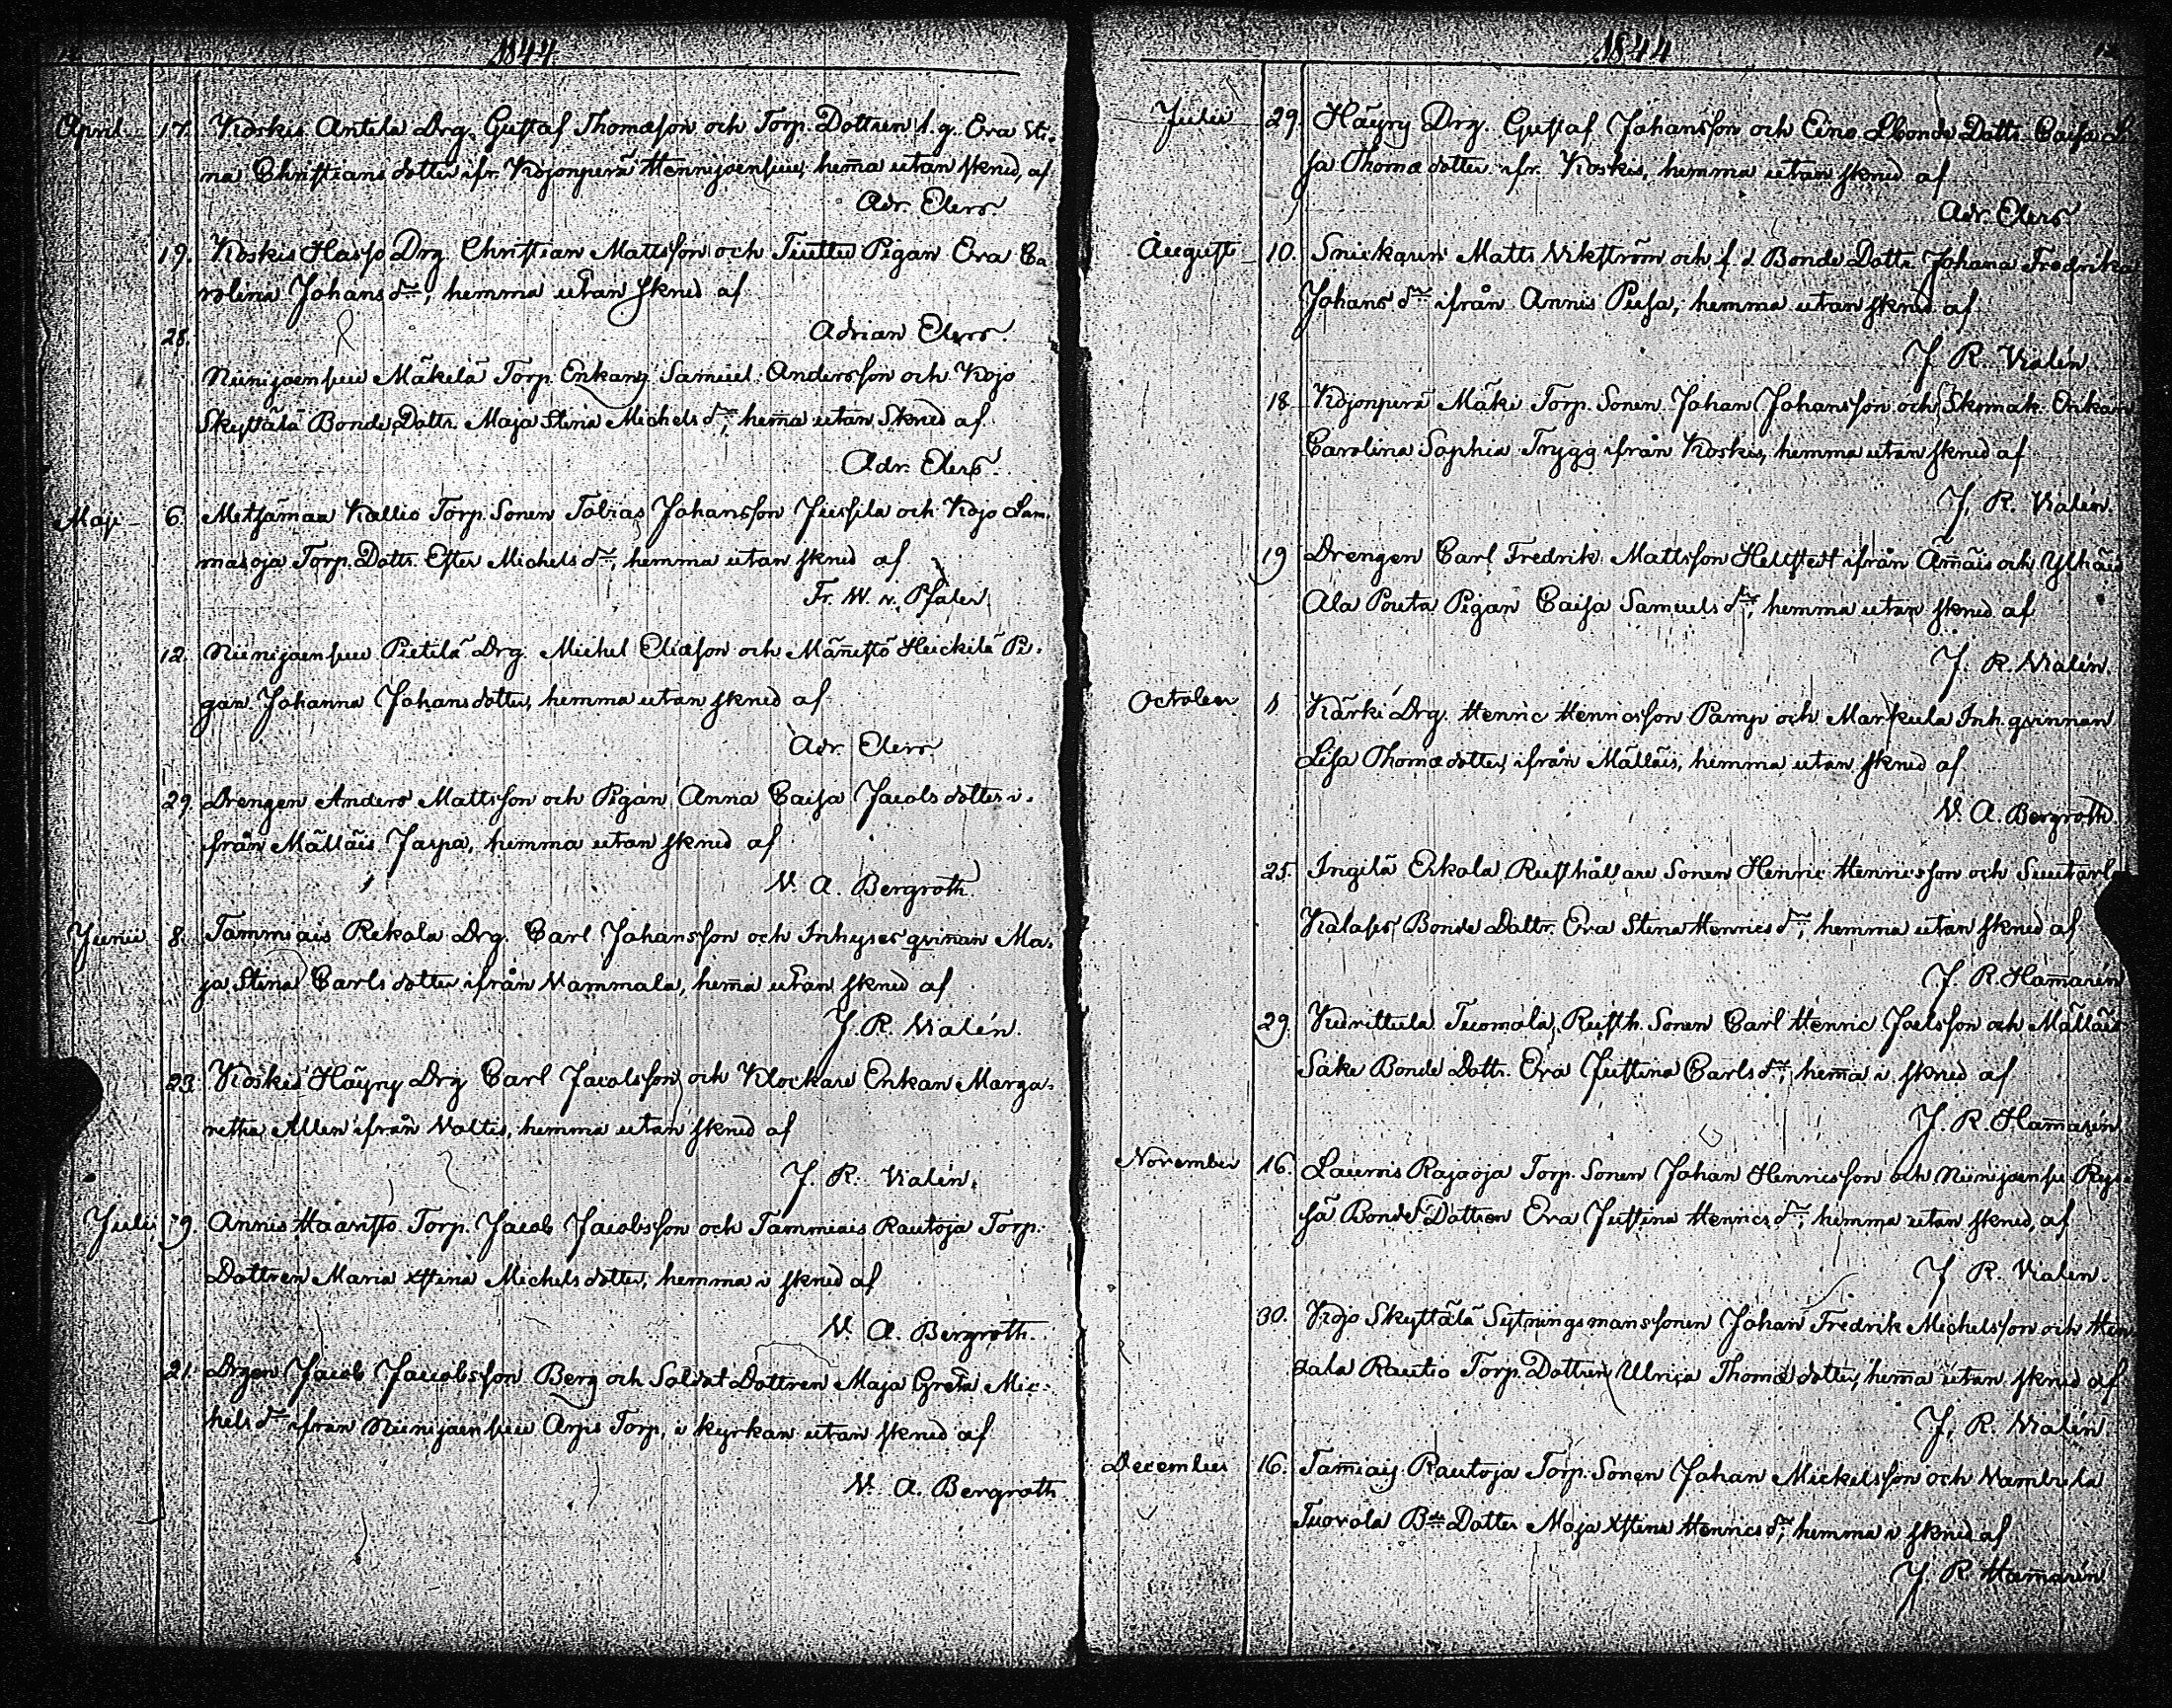 1844
April 17. Koskis Antela Drg. Gustaf Thomasson och Torp. Dottren l. g. Eva Sti-
na Christiansdotter ifr. Kojonperä Hennijoensuu, hema utan skned, af
Adr. Elers.
19. Koskis Hasso Drg. Christian Mattsson och Pigan Eva Ca
rolina Johans dr, hemma utan skned af
Adrian Elers.
28.
Niinijoensuu Mäkilä Torp. Enkang Samuel Andersson och Kojo
Skyttälä Bonde Dottr. Maja Stina Michels dr, hema utan Skned af
Adr. Elers.
Maji 6. Metsämaa Kallio Torp. Sonen Tobias Johansson Jussila och Kojo Lam-
masoja Torp. Dottr. Ester Michels dr, hemma utan skned af
Fr. W. v. Pfaler
12. Niinijoensuu Pietilä Drg. Michel Eliasson och Mänistö Heickilä Pi-
gan Johanna Johansdotter, hemma utan skned af
Adr. Elers
29. Drengen Anders Mattsson och Pigan Anna Caisa Jacobsdotter i-
från Mälläis Jaspa, hemma utan skned af
V. A. Bergroth
Junii 8. Tammiais Rekola Drg. Carl Johansson och Inhyses qvinan Ma-
ja Stina Carlsdotter ifrån Vammala, hema utan skned af
J. R. Vialén.
23. Koskis Häyny Drg Carl Jacobsson och Klockare Enkan Marga-
retha Allen ifrån Valtis, hemma utan skned af
J. R. Vialén.
Julii 9. Annis Haaristo Torp. Jacob Jacobsson och Tammiais Rautoja Torp.
Dottren Maria Xstina Michelsdotter, hemma i skned af
V. A. Bergroth.
21. Drgen Jacob Jacobsson Berg och Soldat Dottren Maja Greta Mic-
hels dr ifrån Niinijoensuu Arpis Torp, i kyrkan utan skned af
V. A. Bergroth
1844
Julii 29. Häyny Drg. Gustaf Johansson och Eino Bonde Dottr. Caisa
sa Thomædotter ifr. Koskis, hemma utan skned af
Adr. Elers
Augusti 10. Snickaren Matts Vikström och f. d. Bonde Dottr Johana Fredrika
Johans dr ifrån Annis Pusa, hemma utan skned af
J. R. Vialén
18. Kojonperä Mäki Torp. Sonen Johan Johansson och Skomak. Enkan
Carolina Sophia Trygg ifrån Koskis, hemma utan skned af
J. R. Vialén.
19 Drengen Carl Fredrik Mattsson Hellstedt ifrån Ämäis och Ylhäis
Ala Pouta Pigan Caisa Samuels dr, hemma utan skned af
J. R. Vialén.
October 1 Kärki Drg. Henric Henricsson Pamp och Markula Inh. qvinnan
Lisa Thomædotter, ifrån Mälläis, hemma utan skned af
V. A. Bergroth.
25. Ingilä Erkola Rusthållare Sonen Henric Henricsson och
Bonde Dottr. Eva Stina Henrics dr, hemma utan skned af
J. R. Hamarén
29. Kurittula Tuomola Rusth. Sonen Carl Henric Joelsson och Mälläis
Sake Bonde Dottr. Eva Justina Carls dr, hema i skned af
J. R. Hamarén
November 16. Laurois Rajaoja Torp. Sonen Johan Henricsson och Niinijoensu
sä Bonde Dottren Eva Justina Henrics dr, hemma utan skned, af
J. R. Vialen.
30. Kojo Skyttälä Sytningsmanssonen Johan Fredrik Michelsson och Hen
sala Rautio Torp. Dottren Ulrica Thomædotter, hema utan skned af
J. R. Vialén
December 16. Tamiais Rautoja Torp. Sonen Johan Mickelsson och Vambula
Tuovola Bde Dotter Maja Xstina Henrics dr, hemma i skned af
J. R. Hamarén